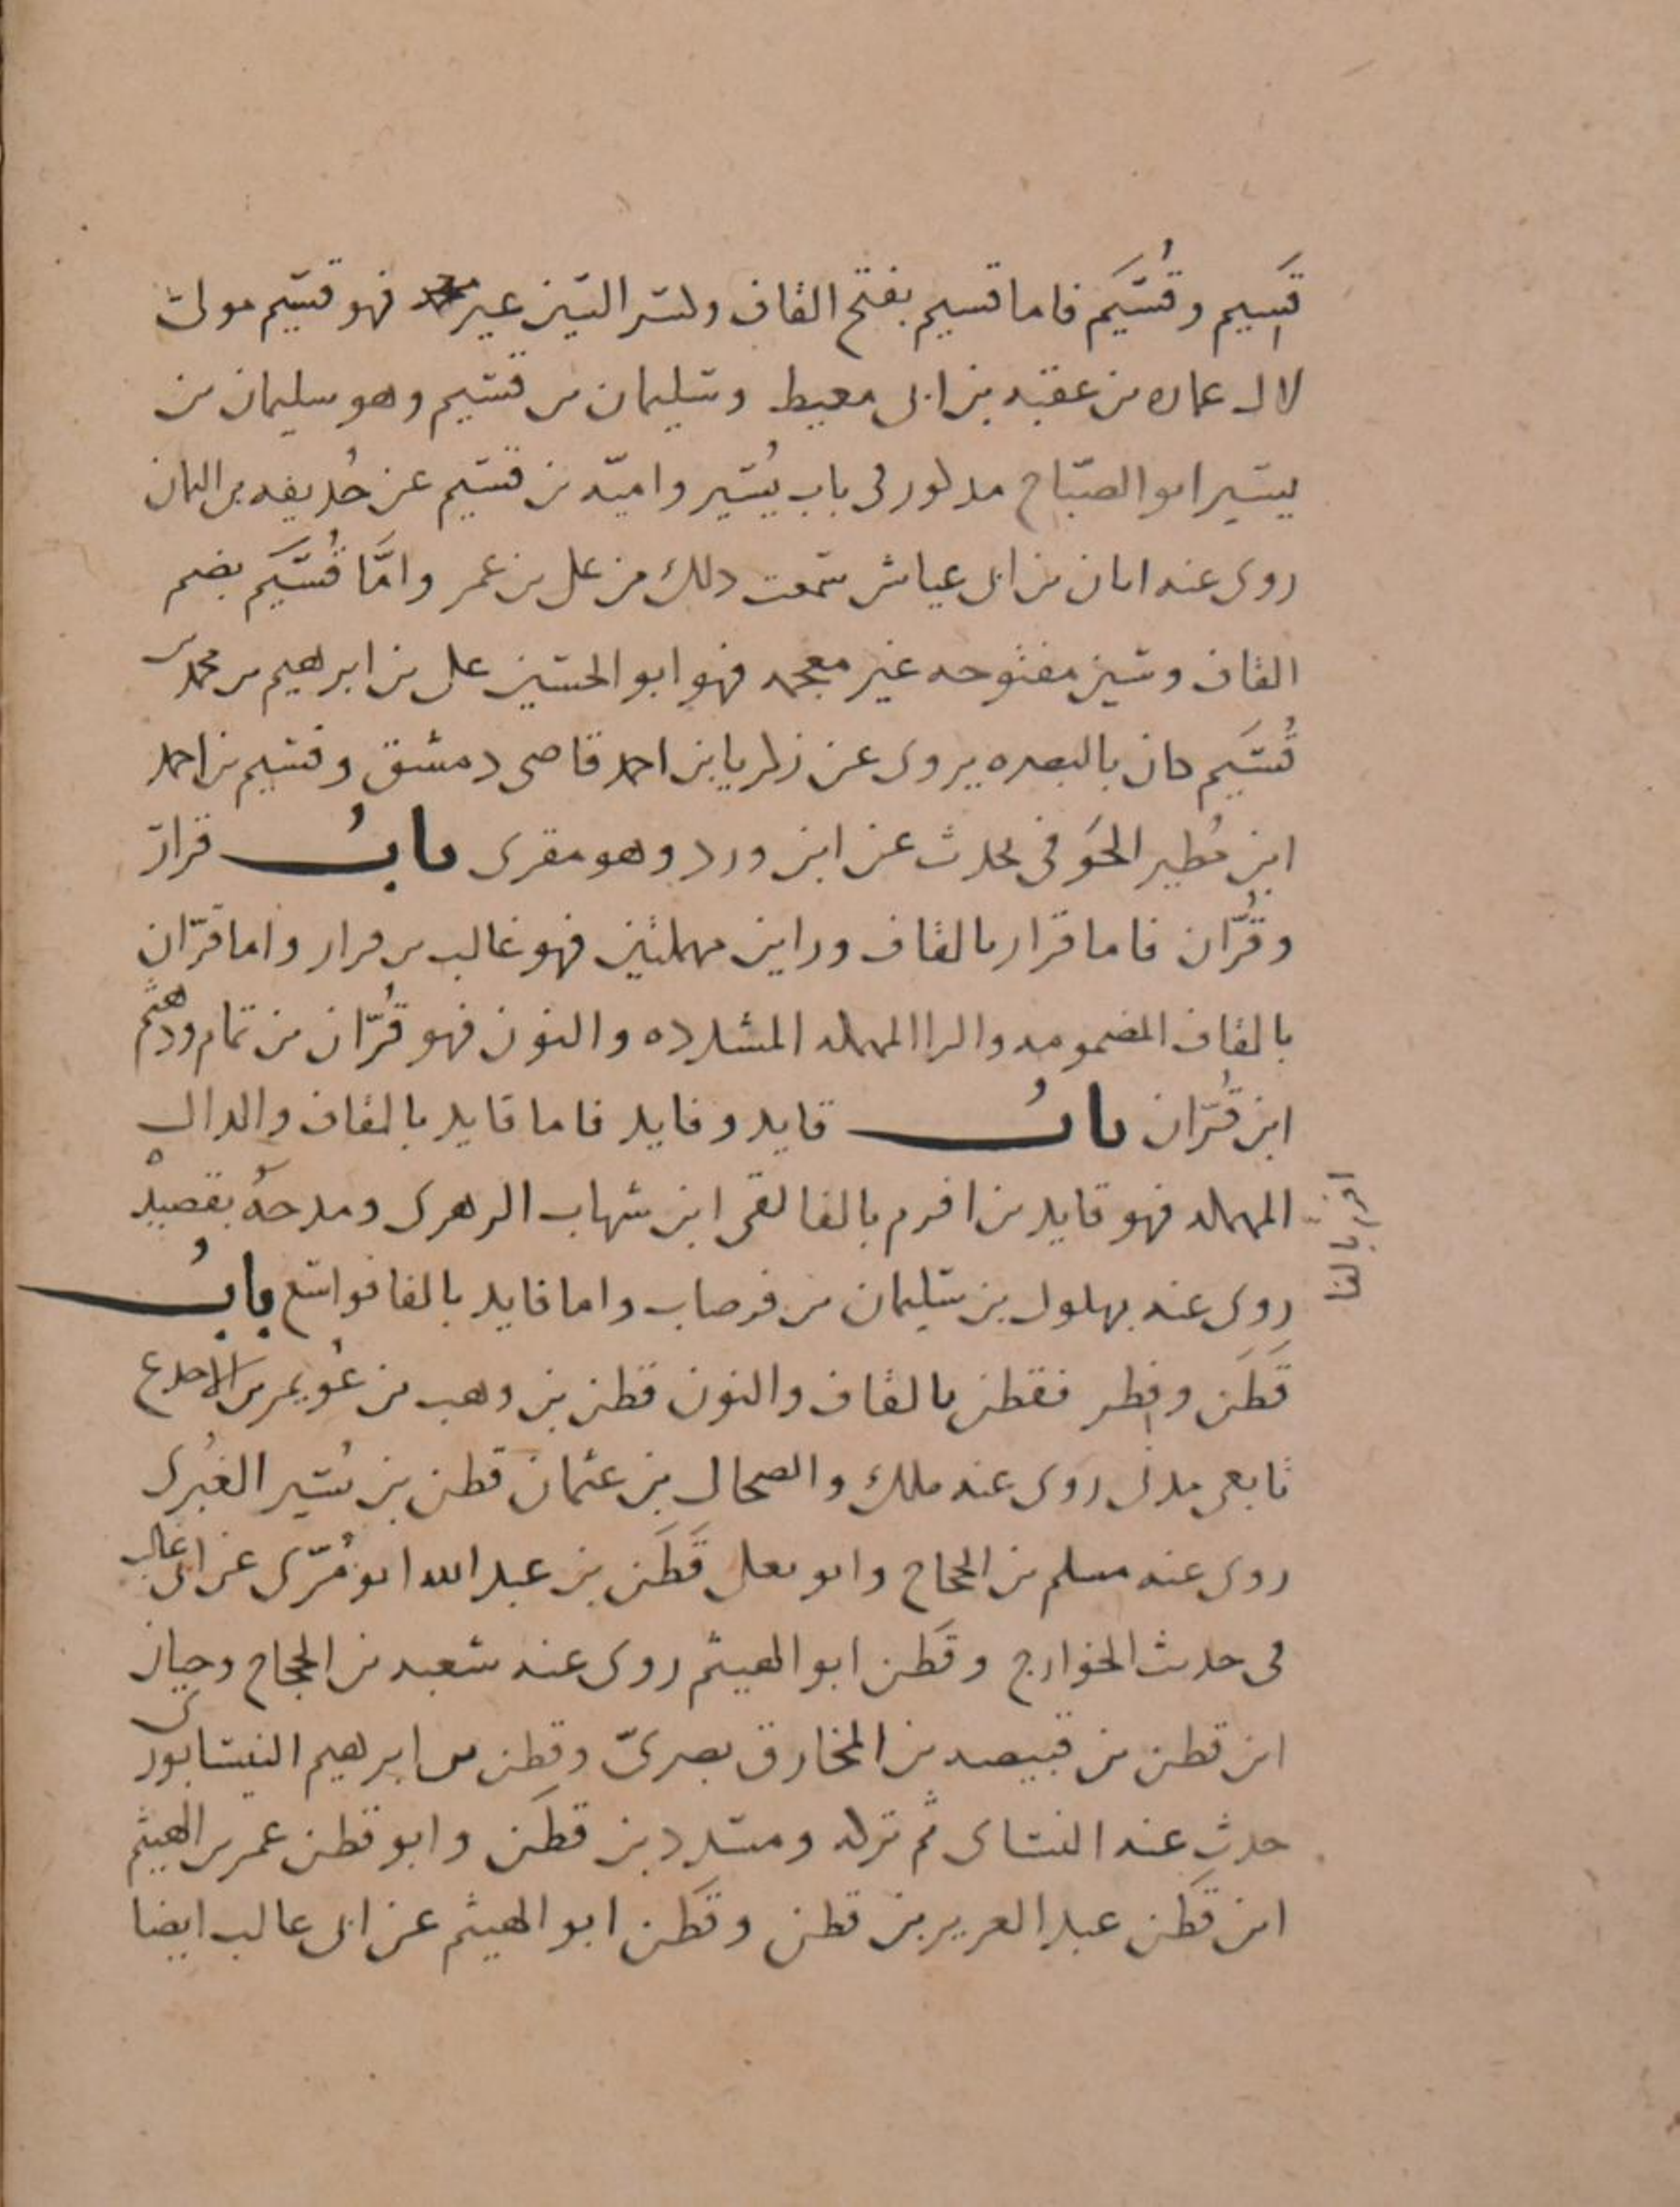 قَسِيم وقُسَيَم فاما قسيم بفتح القاف وكسر السين غير معجمه فهو قسيم مولى
لال عماره بن عقبه بن ابى معيط وسليمان بن قسيم وهو سليمان بن
يسير ابو الصبّاح مذكور فى باب يُسَير واميّه بن قسيم عن حُذيفه بن اليمان
روى عنه ابان بن ابى عياش سمعت ذلك من على بن عمر وامَّا قُسَيَم بضم
القاف وسين مفتوحه غير معجمه فهو ابو الحسين على بن ابرهيم بن محمد بن
قُسَيَم كان بالبصره يروى عن زكريا بن احمد قاضى دمشق وقسيم بن احمد
ابن مُطير الحَوفى يحدث عن ابن ورد وهو مقرى بابُ قرار
وقُرّان فاما قرار بالقاف وراين مهملتين فهو غالب بن قرار واما قرّان
بالقاف المضمومه والرا المهمله المشدده والنون فهو قُرّان بن تمام ودهثم
ابن قُرّان بابُ قايد وفايد فاما قايد بالقاف والدال
المهمله فهو قايد بن افرم بالفا لقى ابن شهاب الزهرى ومدحهُ بقصيدهْ
روى عنه بهلول بن سليمان بن قرصاب واما فايد بالفا فواسع بابُ
قَطَن وفِطر فقطن بالقاف والنون قطن بن وهب بن عُويمر بن الاجدع
تابعى مدنى روى عنه ملك والضحاك بن عثمان قطن بن نُسَير الغُبَرى
روى عنه مسلم بن الحجاج وابو يعلى قَطَن بن عبد الله ابو مُرّى عن ابى غالب
فى حديث الخوارج وقَطن ابو الهيثم روى عنه شعبه بن الحجاج وحيان
ابن قطن بن قبيصه بن المخارق بصرىّ وقطن بن ابرهيم النيسابورى
حدث عنه النسائى ثم تركه ومسدد بن قطَن وابو قطن عمر بن الهيثم
ابن قَطَن عبد العزيز بن قطن وقَطَن ابو الهيثم عن ابى غالب ايضا